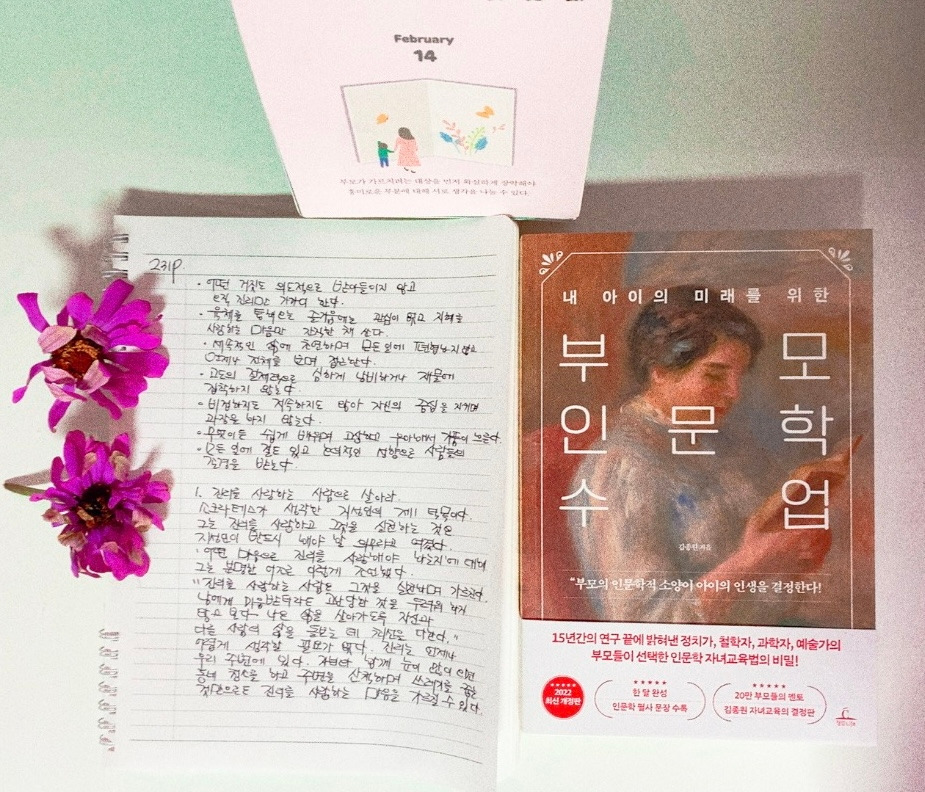 February
14
부모가 가르치려는 대상을 먼저 확실하게 장악해야
흥미로운 부분에 대해 서로 생각을 나눌 수 있다.
231P.
· 어떤 거짓도 의도적으로 받아들이지 않고
오직 진리만 가까이 한다.
· 육체를 통해 얻는 즐거움에는 관심이 없고 지혜를
사랑하는 마음만
· 세속적인 삶에 초연하며 모든 일에
언제나 전체를 보며 접근한다.
· 고도의 절제력으로 심하게 낭비하거나 재물에
집착하지 않는다.
· 비겁하지도 저속하지도 않아 자신의 중심을 지키며
과장을 하지 않는다.
· 무엇이든 쉽게 배우며 고상하고 우아해서 기품이 흐른다.
· 모든 일에 절도 있고 성향으로 사람들의
존경을 받는다.
1. 진리를 사랑하는 사람으로 살아라.
소크라테스가 생각한 지성인의 7개 덕목이다.
그는 진리를 사랑하고 그것을 실천하는 것은
지성인이 반드시 해야 할 의무라고 여겼다.
'어떤 마음으로 진리를 사랑해야 하는지'에 대해
그는 분명한 어조로 이렇게 조언했다.
"진리를 사랑하는 사람은 그것을 실천하며 가르친다.
남에게 미움받더라도 고난당할 것을 두려워 하지
않고 보다 나은 삶을 살아가도록 자신과
다른 사람의 삶을 돌보는 데 최선을 다한다."
어렵게 생각할 필요가 없다. 진리는 언제나
우리 주변에 있다. 자녀와 함께 눈이 많이 오면
동네 청소를 하고 주변을 산책하며 쓰레기를 줍는
것만으로도 진리를 사랑하는 마음을 기를 수 있다.
내 아이의 미래를 위한
부모
인문학
수업
김종원 지음
"부모의 인문학적 소양이 아이의 인생을 결정한다!
15년간의 연구 끝에 밝혀낸 정치가, 철학자, 과학자, 예술가의
부모들이 선택한 인문학 자녀교육법의 비밀!
2022
최신 개정판
한 달 완성
인문학 필사 문장 수록
20만 부모들의 멘토
김종원 자녀교육의 결정판
청림Life